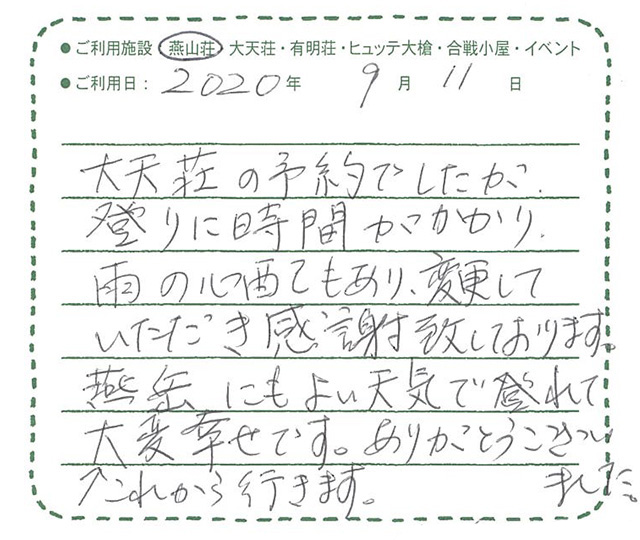 ● ご利用施設 燕山荘 大天荘・有明荘・ヒュッテ大槍・合戦小屋・イベント
● ご利用日： 2020年 9月 11日
大天荘の予約でしたが、
登りに時間がかかり、
雨の心配もあり、変更して
いただき感謝致しております。
燕岳にもよい天気で登れて
大変幸せです。ありがとうございました。
↑これから行きます。